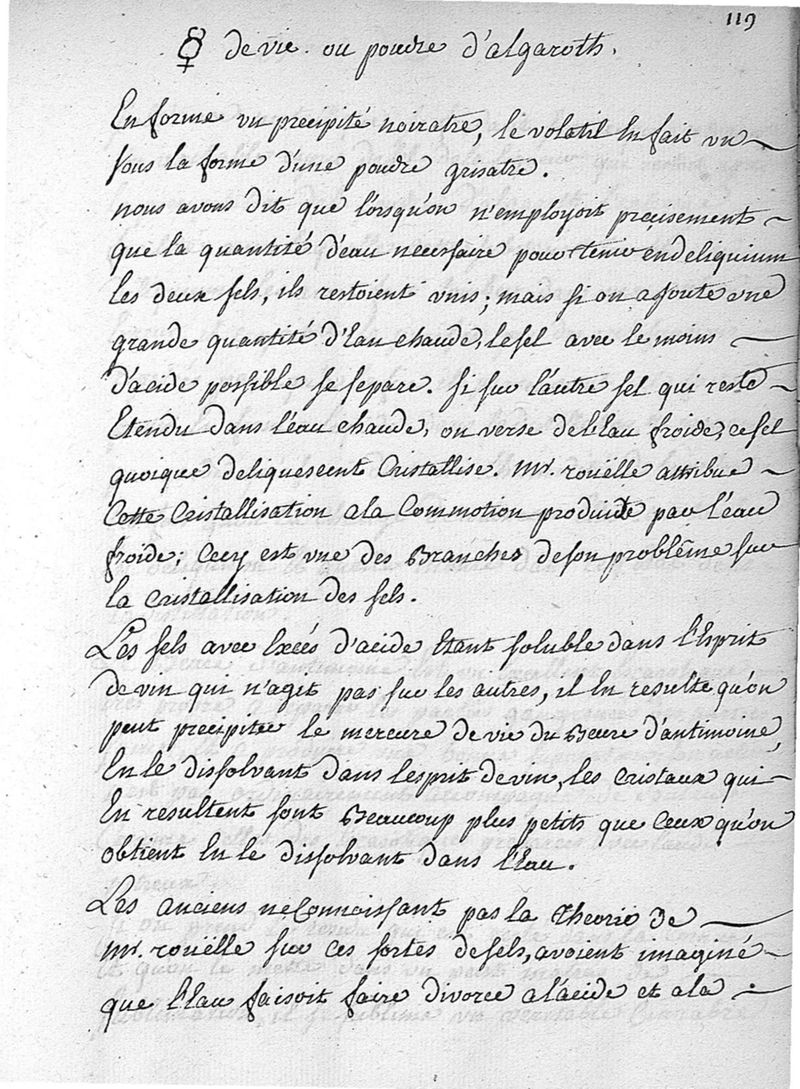 119
☿ de vie ou poudre d'algaroth.
En forme un precipité noiratre, le volatil En fait un
sous la forme d'une poudre grisatre.
nous avons dit que lorsqu'on n'employoit precisement
que la quantité d'eau necessaire pour tenir en deliquium
les deux sels, ils restoient unis; mais si on ajoute une
grande quantité d'Eau chaude, le sel avec le moins
d'acide possible se separe. si sur l'autre sel qui reste
Etendu dans l'eau chaude, on verse de l'Eau froide, ce sel
quoique deliquescent Cristallise. mr. rouëlle attribue
Cette Cristallisation a la Commotion produite par l'eau
froide; Cecy est une des Branches de son problême sur
la cristallisation des sels.
Les sels avec Excés d'acide Etant soluble dans l'Esprit
de vin qui n'agit pas sur les autres, il En resulte qu'on
peut precipiter le mercure de vie du Beure d'antimoine,
En le dissolvant dans l'esprit de vin, les cristaux qui
En resultent sont Beaucoup plus petits que Ceux qu'on
obtient En le dissolvant dans l'Eau.
Les anciens ne Connoissant pas la Theorie de
mr. rouëlle sur ces sortes de sels, avoient imaginé
que l'Eau faisoit faire divorce a l'acide et a la